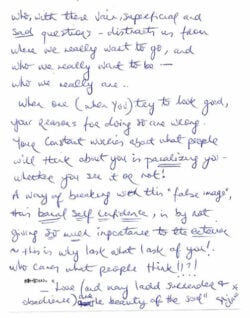 who, with these vain, superficial and
sad questions - distracts us from
where we really want to go, and
who we really want to be —
who we really are..
When one (when you) try to look good,
your reasons for doing so are wrong.
Your constant worries about what people
will think about you is paralizing you -
whether you see it or not!
A way of breaking with this "false image",
this banal self confidence, is by not
giving so much importance to the exterior
~ this is why I ask what I ask of you!
Who cares what people think!!?!
— "Love (and may I add surrender &
obedience) are the beauty of the soul"